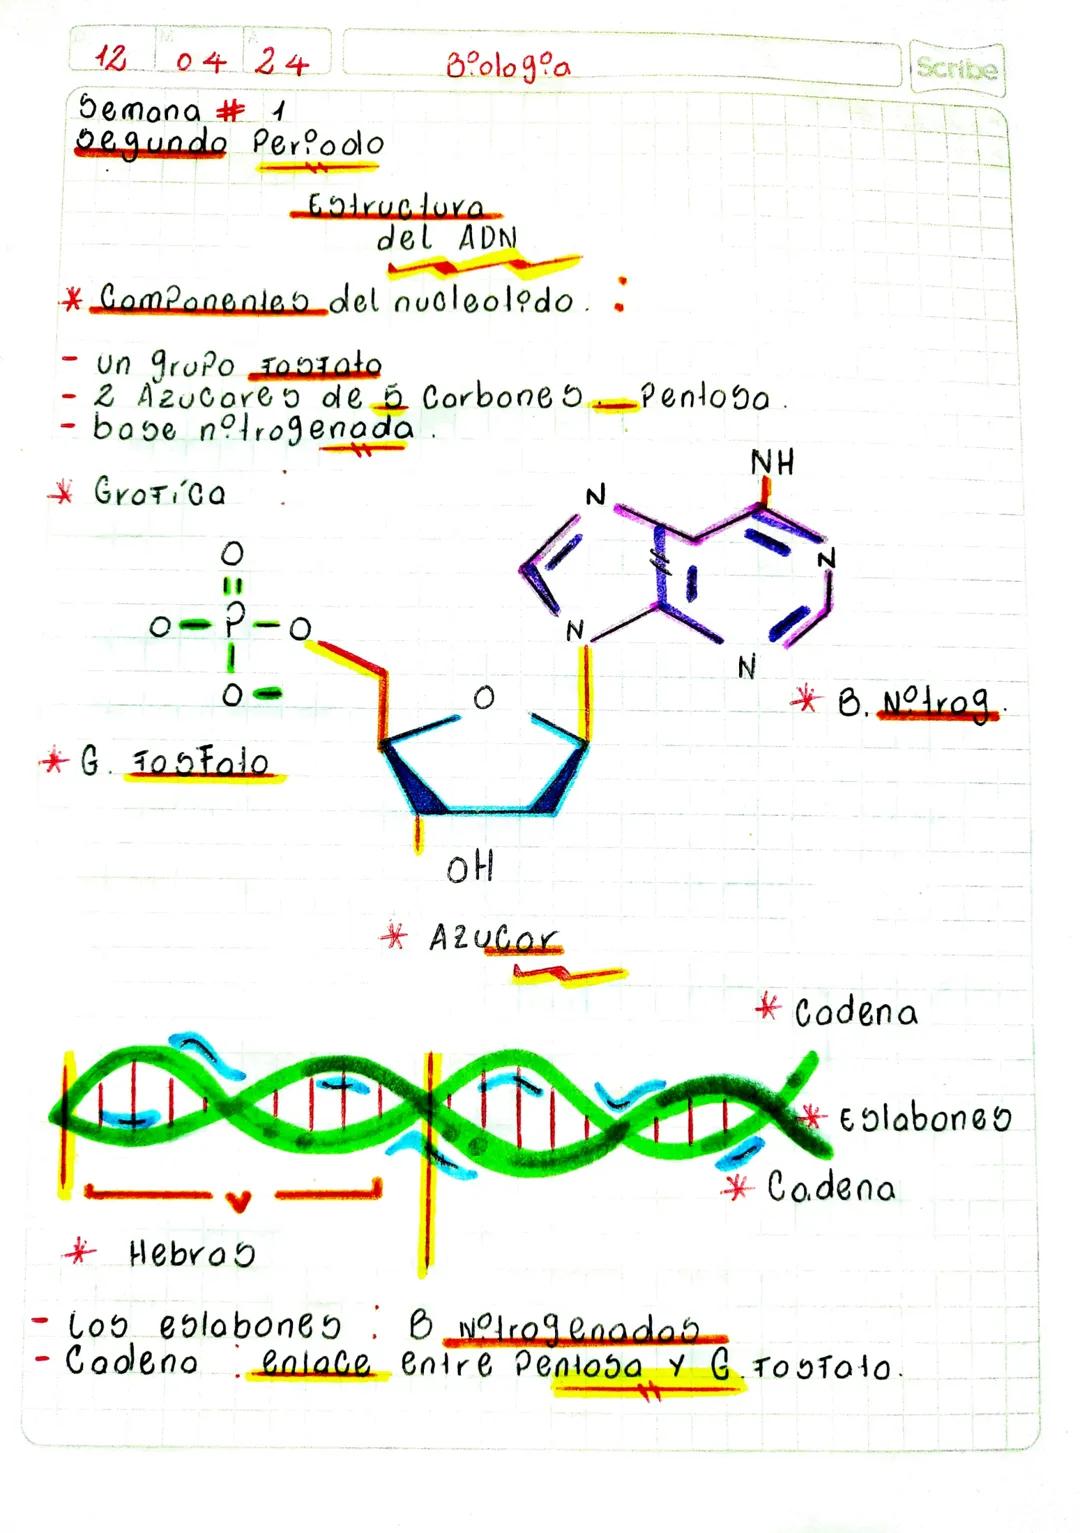 12 04 24
Biología
Scribe
Semana # 1
Segundo Periodo
Estructura
del ADN
* Componentes del nucleotido. :
- un grupo fosfato
- 2 Azucares de 5 Carbones. _ Pentosa.
- base nitrogenada.
* Grafíca :
NH
N
N
N
N
O
O - P - O
O -
O
OH
* B. Nitrog.
* G. Fosfato
* Azucar
* Cadena
* Eslabones
* Cadena
* Hebras
- Los eslabones : B Nitrogenadas
- Cadena : enlace entre Pentosa y G. Fosfato.